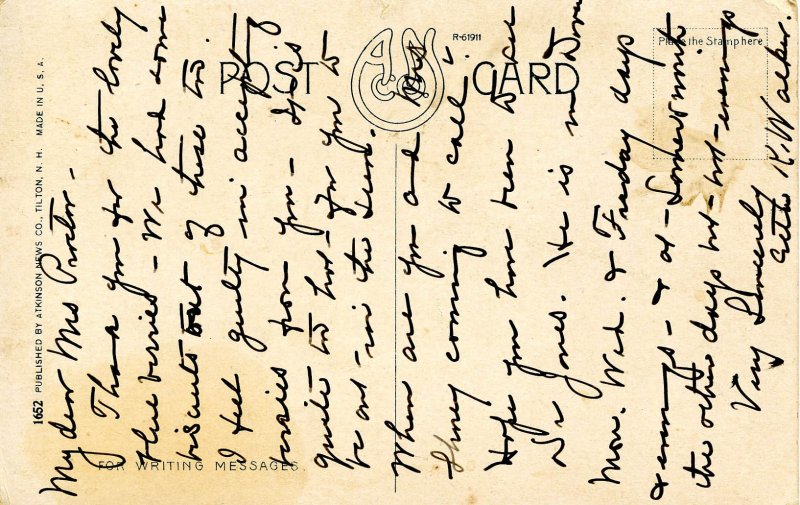 My dear Mrs Proctor -
Thank you for the lovely
blue berries - We had some
biscuits out of these two.
I feel guilty in accepting
berries from you - It is
quite too hot - for you to
be out - in the sun.
When are you and Miss
coming to call -
Hope you have been to see
Dr Jones. He is in Dover
Mon. Wed. & Friday days
& evenings - & at - Somersworth
the other days but - not - evenings
Very Sincerely
K. Walker.
POST CARD
R-61911
Place the Stamp here
1652 PUBLISHED BY ATKINSON NEWS CO., TILTON, N. H. MADE IN U. S. A.
FOR WRITING MESSAGES.